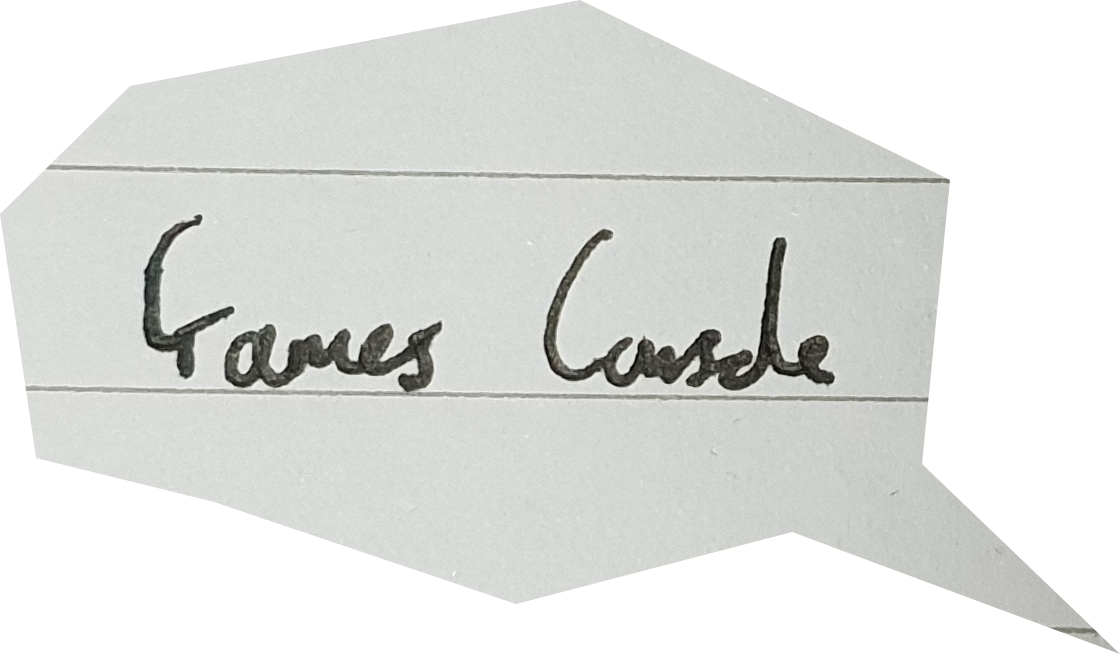 Games Console